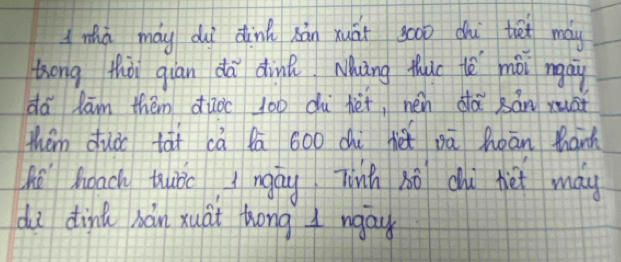 1 nhà máy dự định sản xuất 3000 chi tiết máy
trong thời gian đã định. Nhưng thực tế mỗi ngày
đã làm thêm được 100 chi tiết, nên đã sản xuất
thêm được tất cả là 600 chi tiết và hoàn thành
kế hoạch trước 1 ngày. Tính số chi tiết máy
dự định sản xuất trong 1 ngày